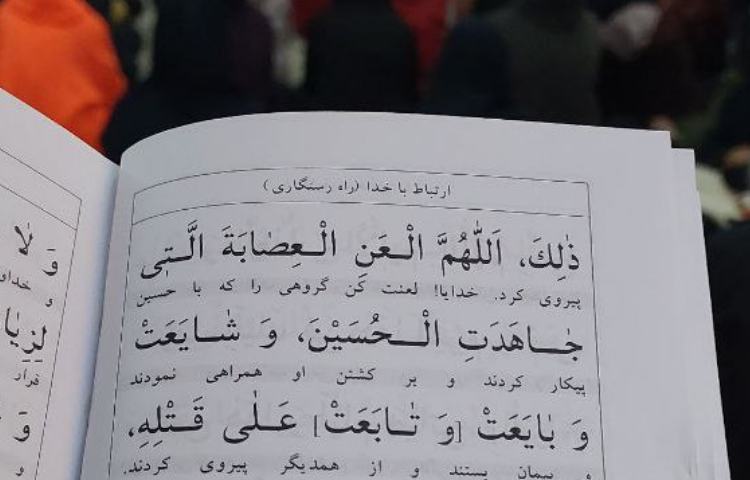 ارتباط با خدا (راه رستگاری)
ذٰلِكَ، اَللّٰهُمَّ الْعَنِ الْعِصٰابَةَ الَّتِى
پیروی کرد. خدایا! لعنت کن گروهی را که با حسین
جٰاهَدَتِ الْحُسَيْنَ، وَ شٰايَعَتْ
پیکار کردند و بر کشتن او همراهی نمودند
وَ بٰايَعَتْ [وَ تٰابَعَتْ] عَلٰى قَتْلِهِ،
و پیمان بستند و از همدیگر پیروی کردند.
وَ لاٰ
و خداو
لِزِيٰا
قرار
وَ
و